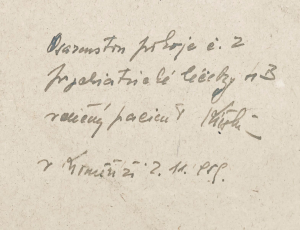 Osazenstvo pokoje č. 2
psychiatrické léčebny
vděčný pacient
v Kroměříži 2. 11. 1959.